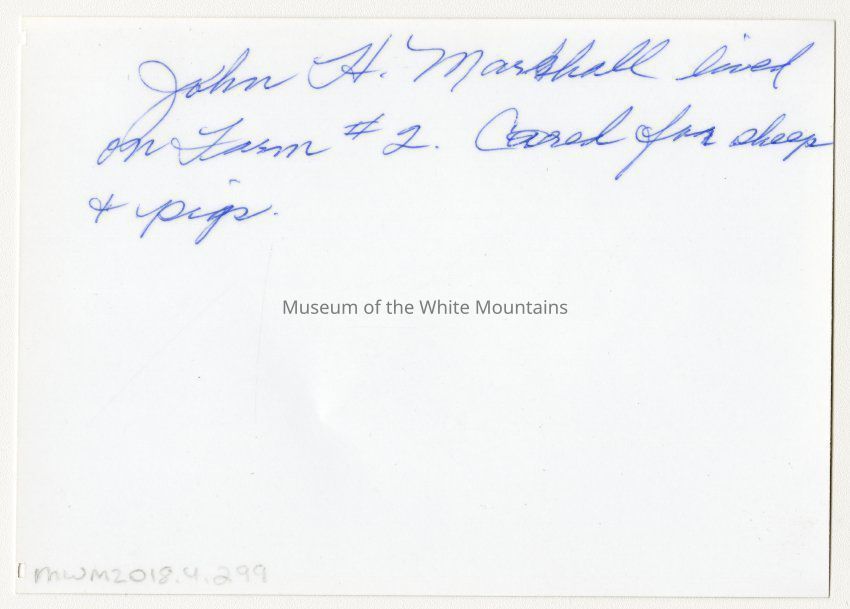 John H. Marshall lived
on Farm # 2. Cared for sheep
& pigs.
Museum of the White Mountains
MWM2018.4.299